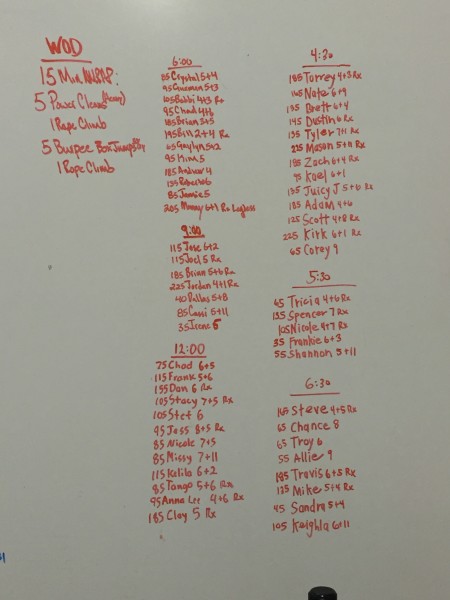 WOD
15 Min AMRAP:
5 Power Cleans
1 Rope Climb
5 Burpee Box Jumps
1 Rope Climb
6:00
Crystal 5+4
95 Guzman 5+3
105 Bobbi 4+3 Rx
95 Chad 4+6
185 Brian 5+5
195 Bill 2+4 Rx
65 Gaylyn 5+2
95 Kim 5
185 Andrew 4
135 Robert 6
85 Jamie 5
205 Manny 6+1 Rx Legless
9:00
115 Jose 6+2
115 Joel 5 Rx
185 Brian 5+6 Rx
225 Jordan 4+1 Rx
40 Dallas 5+8
85 Cassi 5+11
35 Irene 5
12:00
75 Chad 6+5
115 Frank 5+6
155 Dan 6 Rx
105 Stacy 7+5 Rx
105 Stef 6
95 Jess 8+5 Rx
85 Nicole 7+5
85 Missy 7+11
115 Kalila 6+2
85 Tango 5+6 Rx
95 Anna Lee 4+6 Rx
185 Clay 5 Rx
4:30
185 Torrey 4+3 Rx
Nate 6+9
135 Brett 6+4
145 Dustin 6 Rx
135 Tyler 7+1 Rx
225 Mason 5+11 Rx
185 Zach 6+4 Rx
95 Kael 6+1
135 Juicy J 5+6 Rx
185 Adam 4+6
125 Scott 4+8 Rx
225 Kirk 6+1 Rx
65 Corey 9
5:30
65 Tricia 4+6 Rx
135 Spencer 7 Rx
105 Nicole 4+7 Rx
35 Frankie 6+3
55 Shannon 3+11
6:30
Steve 4+5 Rx
65 Chance 8
65 Troy 6
55 Allie 9
185 Travis 6+5 Rx
135 Mike 5+4 Rx
45 Sandra 5+4
105 Keighla 6+11